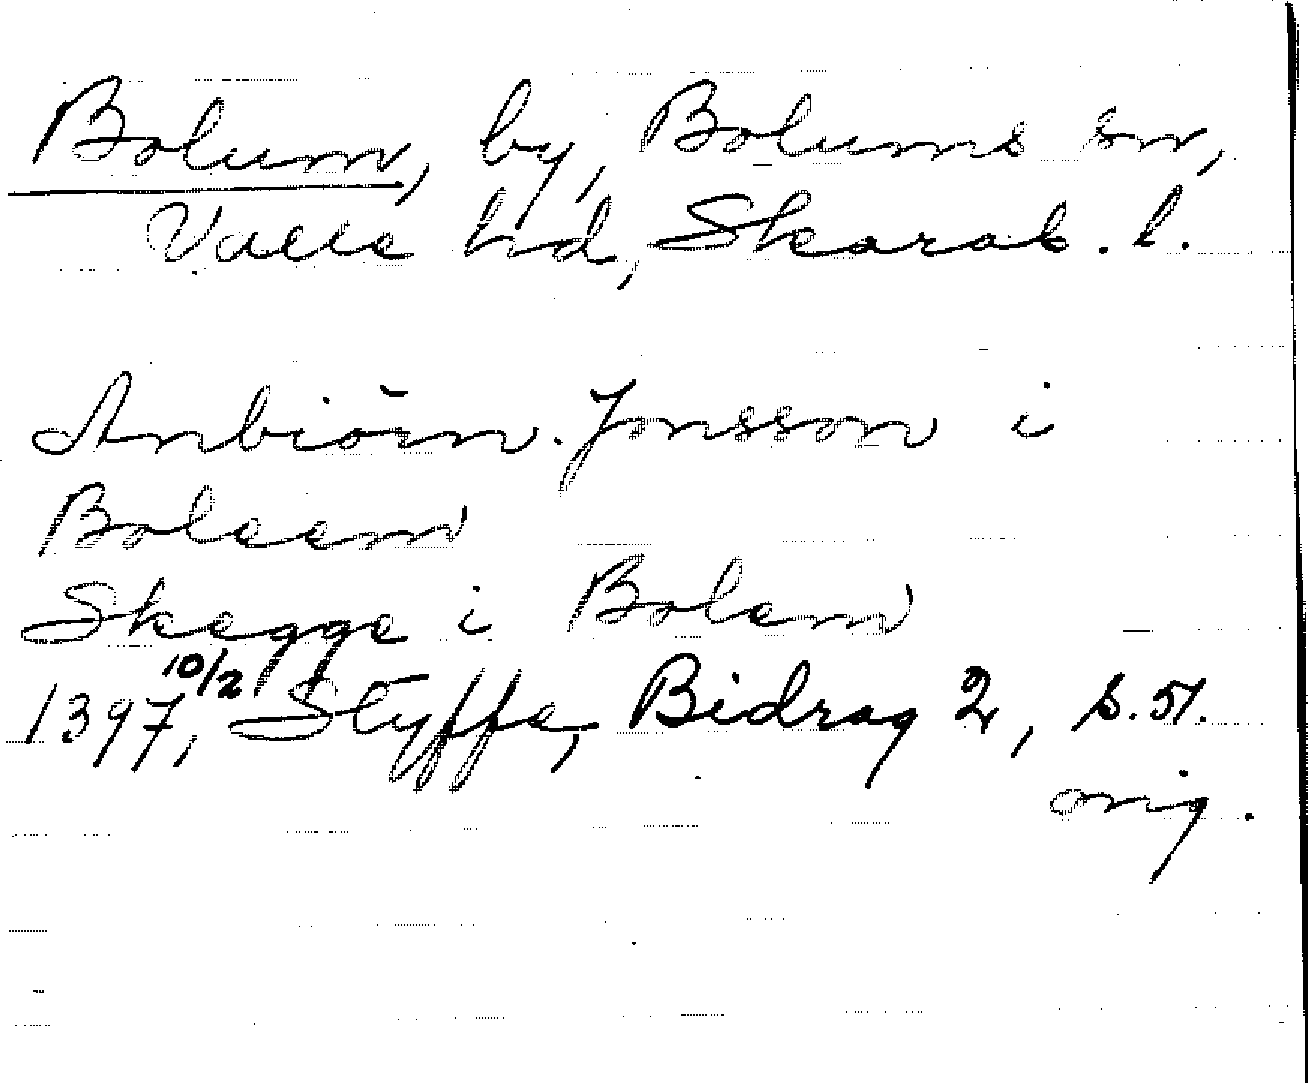 Bolum, by, Bolums sn,
Valle hd, Skarab. l.
Anbiörn Jonsson i
Boleem
Skegge i Bolem
1397 10/2, Styffe, Bidrag 2, s. 51.
orig.